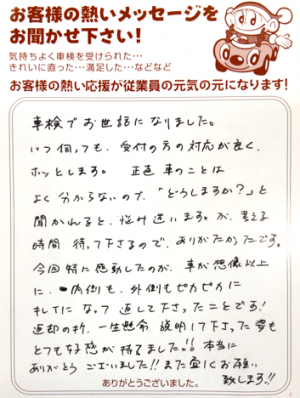 お客様の熱いメッセージを
お聞かせ下さい!
気持ちよく車検を受けられた…
きれいに直った…満足した…などなど
お客様の熱い応援が従業員の元気の元になります!
車検でお世話になりました。
いつ伺っても、受付の方の対応が良く、
ホッとします。 正直車のことは
よく分からないので、「どうしますか?」と
聞かれると、悩み迷いますが、考える
時間 待って下さるので、ありがたかったです。
今回特に感動したのが、車が想像以上
に、内側も、外側もピカピカに
キレイになって返して下さったことです!
返却の折、一生懸命 説明して下さった姿も
とても好感が持てました!!本当に
ありがとうございました!!また宜しくお願い
致します!!
ありがとうございました。